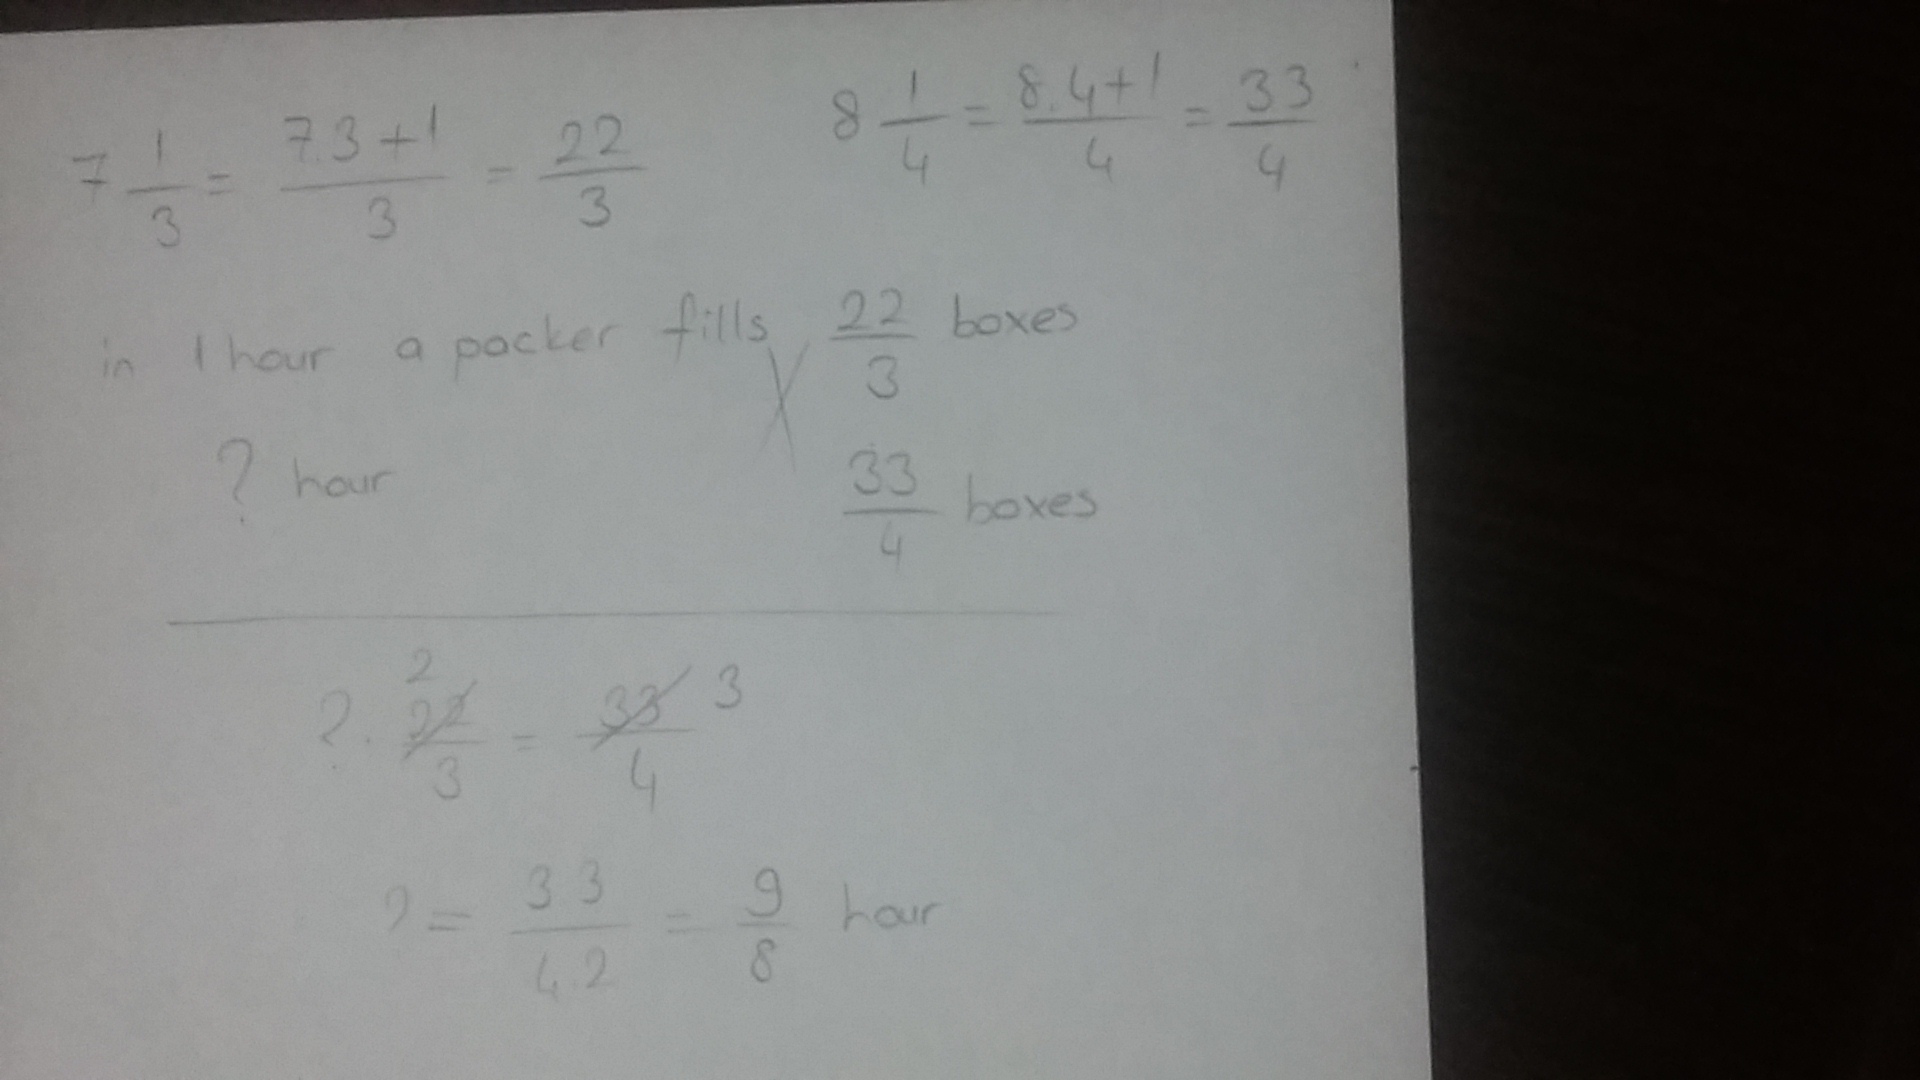 7 1/3 = 7.3+1/3 = 22/3
8 1/4 = 8.4+1/4 = 33/4
in 1 hour a packer fills 22/3 boxes
? hour 33/4 boxes
?. 22/3 2 = 33/4 3
? = 3 3/4.2 = 9/8 hour